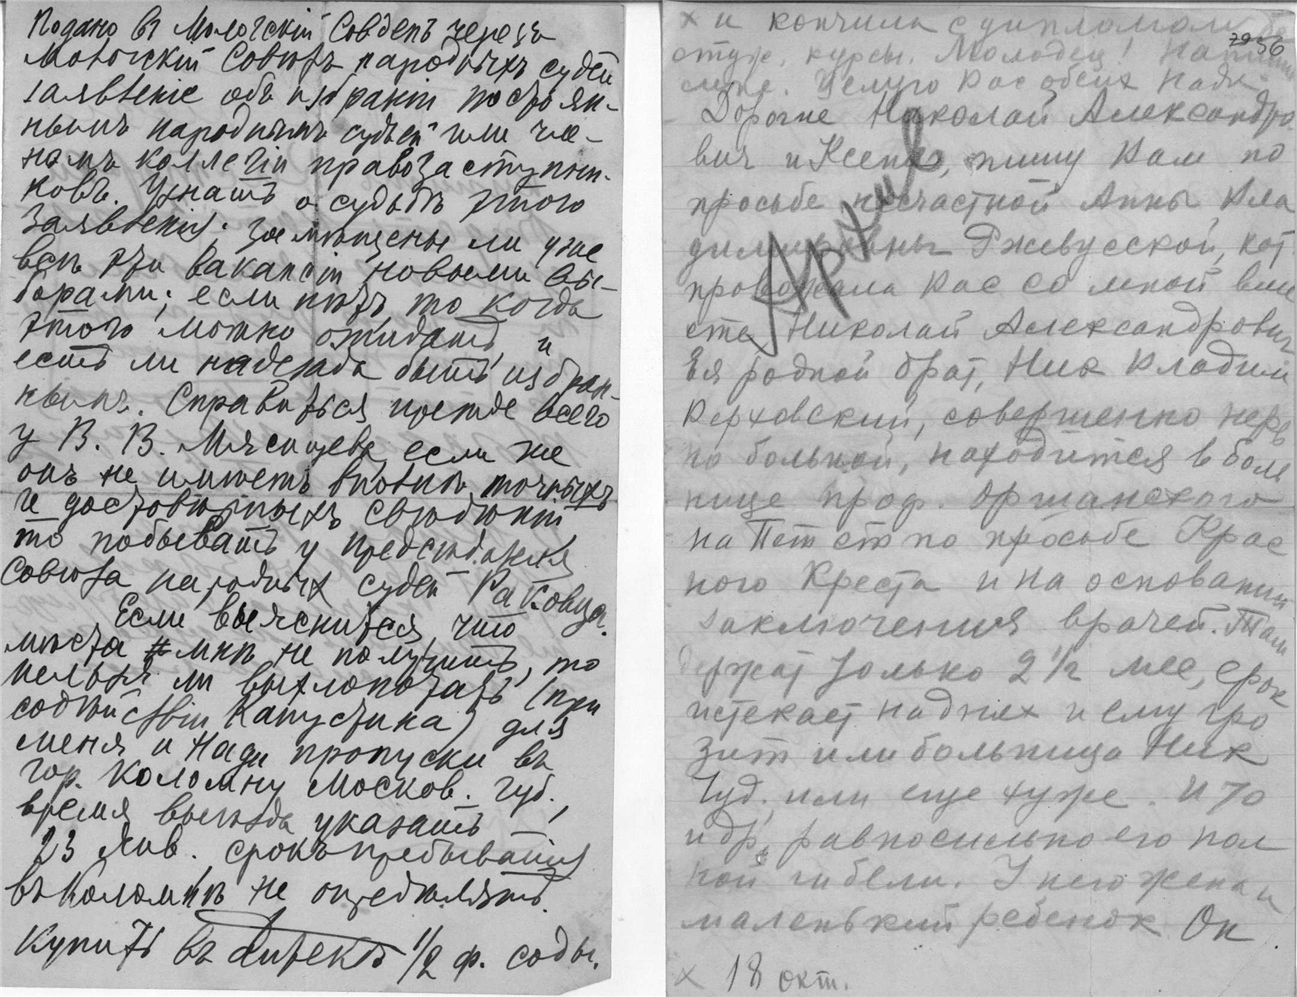 Подано въ Мологскій Совдепъ черезъ
Мологскій Союзъ народныхъ судей
заявленіе объ избраніи постоян-
нымъ народнымъ судьей или чле-
номъ коллегіи правозаступни-
ковъ. Узнать о судьбѣ этого
заявленія: замѣщены ли уже
всѣ эти вакансіи новыми вы-
борами; если нѣтъ, то когда
этого можно ожидать и
есть ли надежда быть избран-
нымъ. Справиться прежде всего
у В. В. Мясищева если же
онъ не имѣетъ вполнѣ точныхъ
и достовѣрныхъ свѣдѣній
то побывать у предсѣдателя
союза народных судей Раковца.
Если выяснится, что
мѣста мнѣ не получить, то
нельзя ли выхлопотать (при
содѣйствіи Капустина) для
меня и Нади пропуски въ
гор. Коломну Москов. губ.,
время выезда указать
23 Янв. срокъ пребыванія
въ Коломнѣ не опредѣлять.
Купить въ 1/2 ф. соды.
х и кончила с дипломом
стук. курсы. Молодец!
Целую Вас обеих Надя
79 56
Дорогие Николай Александро
вич и Ксения, пишу Вам по
просьбе несчастной Анны Вла
димировны Ржевусской, кот.
провожала Вас со мной вме
сте Николай Александрович
Ея родной брат, Ник Владим
Верховский, совершенно нерв
но больной, находится в боль
нице проф. Оршанского
на Пет ст по просьбе Крас
ного Креста и на основании
заключения врачей. Там
держат только 2 1/2 мес, срок
истекает на днях и ему гро
зит или больница Ник
Чуд. или еще хуже. И то
и др. равносильно его пол
ной гибели. У него жена и
маленький ребенок Он
х 18 окт.
Архив